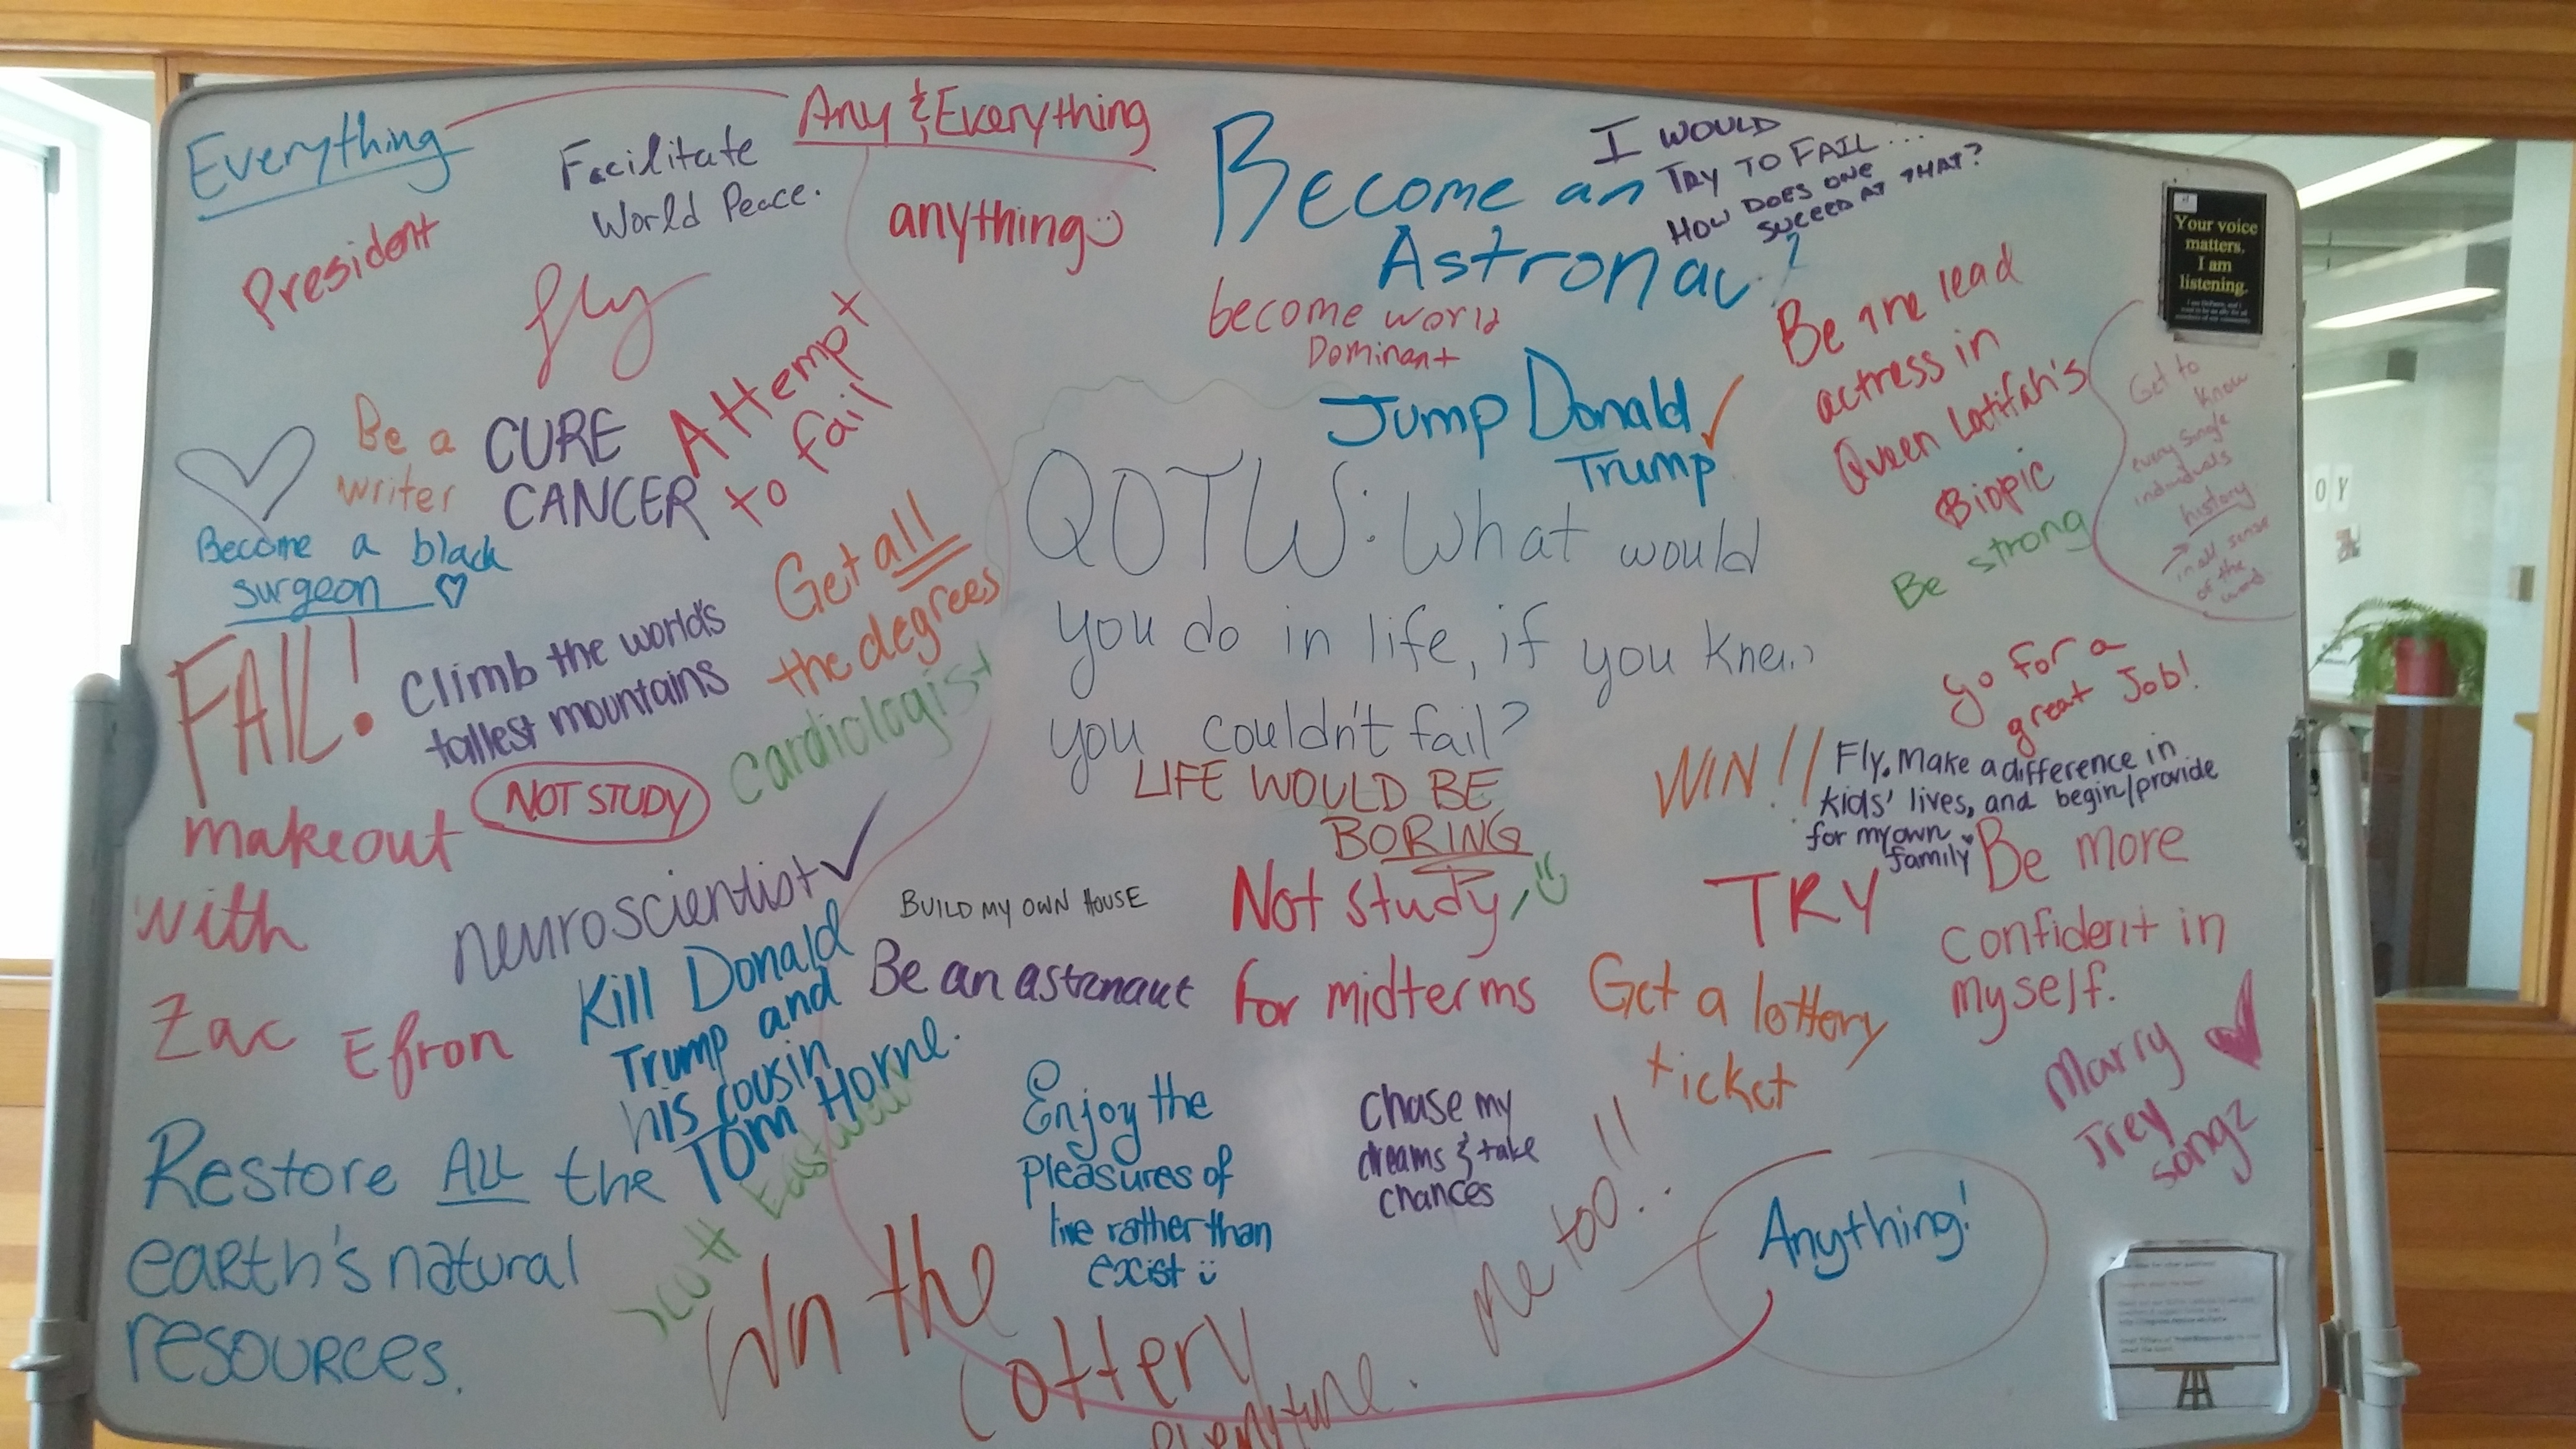 Everything
Any & Everything
Facilitate
World Peace.
President
anything
fly
Become an
Astronau
I WOULD
TRY TO FAIL...
HOW DOES ONE
SUCEED AT THAT?
?
become world
Dominant
Your voice
matters.
I am
listening.
Be the lead
actress in
Queen Latifah's
Biopic
Be strong
Get to
know
every single
individuals
history
in all sense
of the
word
Jump Donald
Trump
Be a
writer
CURE
CANCER
Attempt
to fail
Become a black
surgeon
Get all
the degrees
QOTW: What would
you do in life, if you knew
you couldn't fail?
LIFE WOULD BE
BORING
FAIL!
Climb the world's
tallest mountains
Cardiologist
NOT STUDY
go for a
great Job!
WIN!!
Fly. Make a difference in
kids' lives, and begin/provide
for my own
family
makeout
with
Zac Efron
neuroscientist
BUILD MY OWN HOUSE
Not study,
for midterms
TRY
Be more
confident in
myself.
Kill Donald
Trump and
his cousin
Tom Horne.
Be an astronaut
Get a lottery
ticket
Marry
Trey
songz
Restore ALL the
earth's natural
resources.
Scott Eastwood
Enjoy the
pleasures of
live rather than
exist
chase my
dreams & take
chances
me too!!
Anything!
Win the
lottery